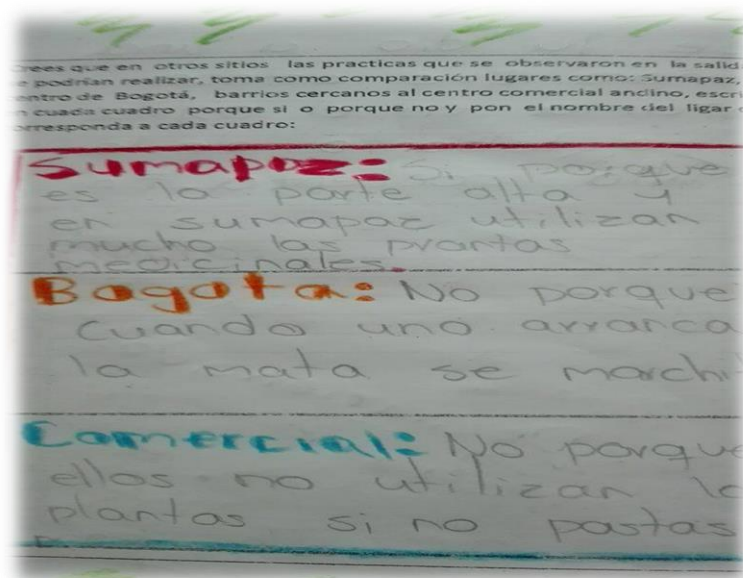 rees que en otros sitios las practicas que se observaron en la salid
e podrían realizar, toma como comparación lugares como: Sumapaz,
entro de Bogotá, barrios cercanos al centro comercial andino, escri
n cuada cuadro porque si o porque no y pon el nombre del ligar
orresponda a cada cuadro:
Sumapaz: Si porque
es la parte alta y
en sumapaz utilizan
mucho las prantas
medicinales.
Bogota: No porque
cuando uno arranca
la mata se marchi
Comercial: No porque
ellos no utilizan la
plantas si no pastas